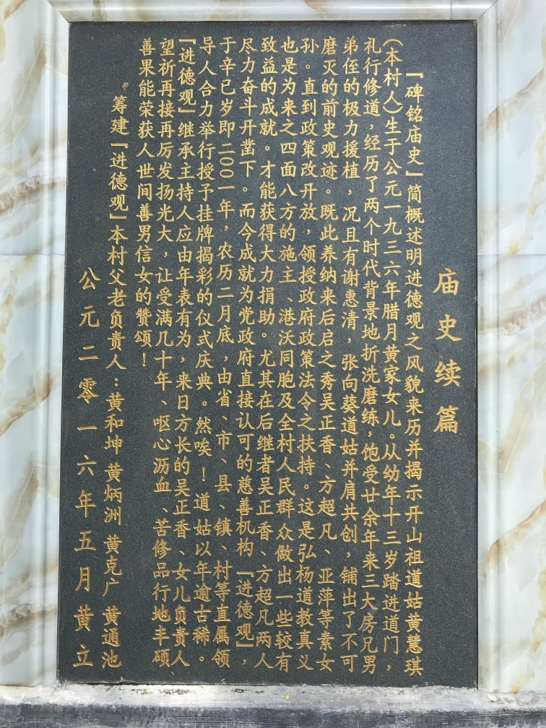 庙史续篇
『碑铭庙史』简概述明进德观之风貌来历并揭示开山祖道姑黄慧琪
(本村人)生于公元一九三六年腊月黄家女儿。从幼年十三岁踏进道门,
礼行修道,经历了两个时代背景地折洗磨练,饱受廿余年来三大房兄男
弟侄的极力援植,况且有谢惠清,张向葵道姑并肩共创,铺出了不可
磨灭的前史观迹。既此养纳来后启之秀吴正香、方超凡、亚萍等素女
孙。直到政策改开放,领授政府政策法令之扶持。这是弘杨道教真义
也是为来之四面八方的施主、港沃同胞及全村人民群众做出一些较有
致益的成就。才能获得大力捐助。尤其在后继者吴正香、方超凡两人
尽力奋斗开凿下。而今成就为党政府直接认可的慈善机构『进德观』,
于辛巳岁即二00一年,农历二月底,由省、市、县、镇、村等直属领
导人合力举行授予挂牌揭彩的仪式庆典。然唉!道姑以年逾古稀。
『进德观』继承主持人应由年表有为,来日方长的吴正香、女儿负责人
望祈再接再厉发扬光大,让受满几十年、呕心沥血、苦修品行地丰硕
善果能荣获人世间善男信女的赞颂!
筹建『进德观』本村父老负责人:黄和坤 黄炳洲 黄克广 黄通池
公元二零一六年五月黄立